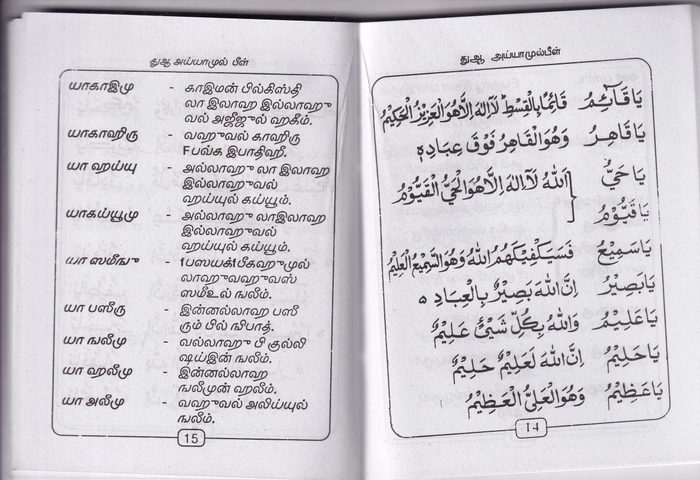 துஆ அய்யாமுல் பீள்
யாகாஇமு - காஇமன் பில்கிஸ்தி
லா இலாஹ இல்லாஹு
வல் அஜீஜுல் ஹகீம்.
யாகாஹிரு - வஹுவல் காஹிரு
Fபவ்க இபாதிஹீ.
யா ஹய்யு - அல்லாஹு லா இலாஹ
இல்லாஹுவல்
ஹய்யுல் கய்யூம்.
யாகய்யூமு - அல்லாஹு லாஇலாஹ
இல்லாஹுவல்
ஹய்யுல் கய்யூம்.
யா ஸமீஙு - fபஸயக்fபீகஹுமுல்
லாஹுவஹுவஸ்
ஸமீஉல் ஙலீம்.
யா பஸீரு - இன்னல்லாஹ பஸீ
ரும் பில் நிபாத்.
யா ஙலீமு - வல்லாஹு பி குல்லி
ஷய்இன் ஙலீம்.
யா ஹலீமு - இன்னல்லாஹ
ஙலீமுன் ஹலீம்.
யா அலீமு - வஹுவல் அலிய்யுல்
ஙலீம்.
15
துஆ அய்யாமுல்பீள்
يَا قَآئِمُ قَائِمًا بِالْقِسْطِ لَآ اِلٰهَ اِلَّا هُوَ الْعَزِيْزُ الْحَكِيْمُ
يَا قَاهِرُ وَهُوَ الْقَاهِرُ فَوْقَ عِبَادِهٖ
يَا حَيُّ اَللّٰهُ لَآ اِلٰهَ اِلَّا هُوَ الْحَيُّ الْقَيُّوْمُ
يَا قَيُّوْمُ
يَا سَمِيْعُ فَسَيَكْفِيْكَهُمُ اللّٰهُ وَهُوَ السَّمِيْعُ الْعَلِيْمُ
يَا بَصِيْرُ اِنَّ اللّٰهَ بَصِيْرٌ بِالْعِبَادِ ه
يَا عَلِيْمُ وَاللّٰهُ بِكُلِّ شَيْئٍ عَلِيْمٌ
يَا حَلِيْمُ اِنَّ اللّٰهَ لَعَلِيْمٌ حَلِيْمٌ
يَا عَظِيْمُ وَهُوَ الْعَلِيُّ الْعَظِيْمُ
14